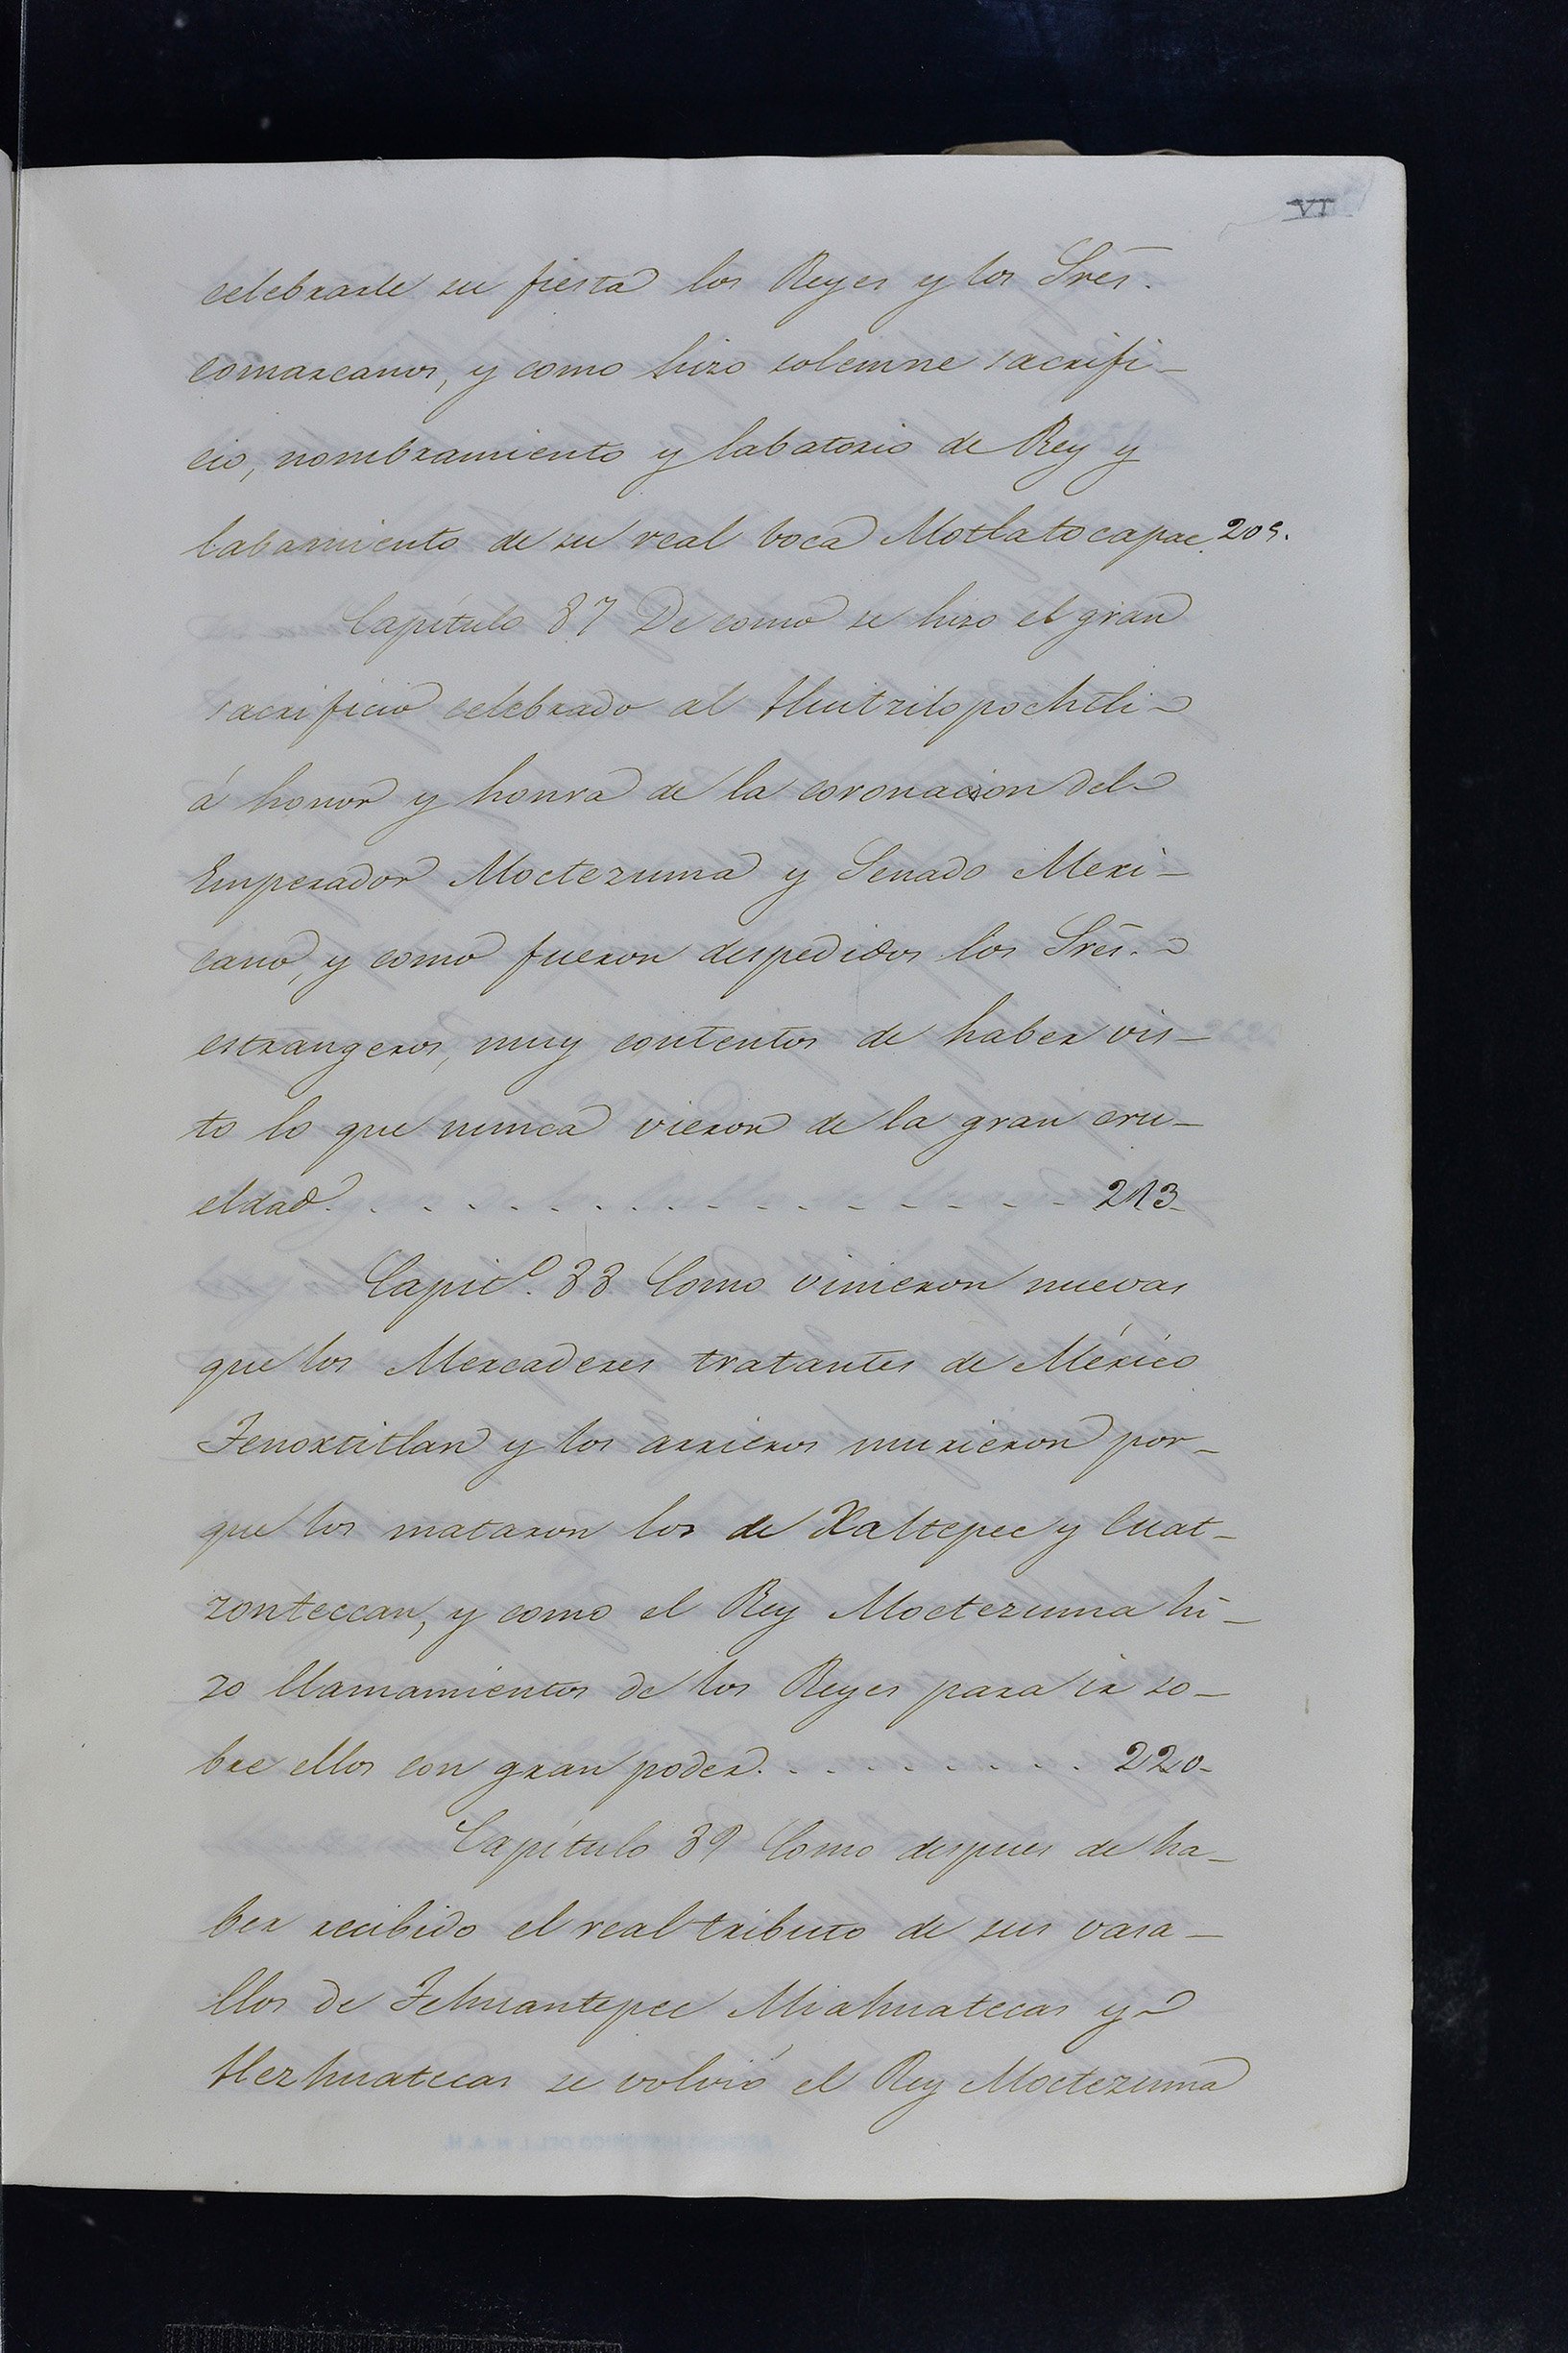 VI
celebrarle su fiesta los Reyes y los Srēs.
comarcanos, y como hizo solemne sacrifi-
cio, nombramiento y labatorio de Rey y
labamiento de su real boca Motlatocapac. 209.
Capítulo 87 De como se hizo el gran
sacrificio celebrado al Huitzilopochtli
á honor y honra de la coronacion del
Emperador Moctezuma y Senado Mexi-
cano, y como fueron despedidos los Srēs.
estrangeros, muy contentos de haber vis-
to lo que nunca vieron de la gran cru-
eldad. . . . . . . . . . . . . . . . . . . 213-
Capitº. 88 Como vinieron nuevas
que los Mercaderes tratantes de México
Tenoxtitlan y los arrieros murieron por-
que los mataron los de Xaltepec y Cuat-
zonteccan, y como el Rey Moctezuma hi-
zo llamamientos de los Reyes para ir so-
bre ellos con gran poder. . . . . . . . . . 220-
Capítulo 89 Como despues de ha-
ber recibido el real tributo de sus vasa-
llos de Tehuantepec Miahuatecas y
Hezhuatecas se volvió el Rey Moctezuma